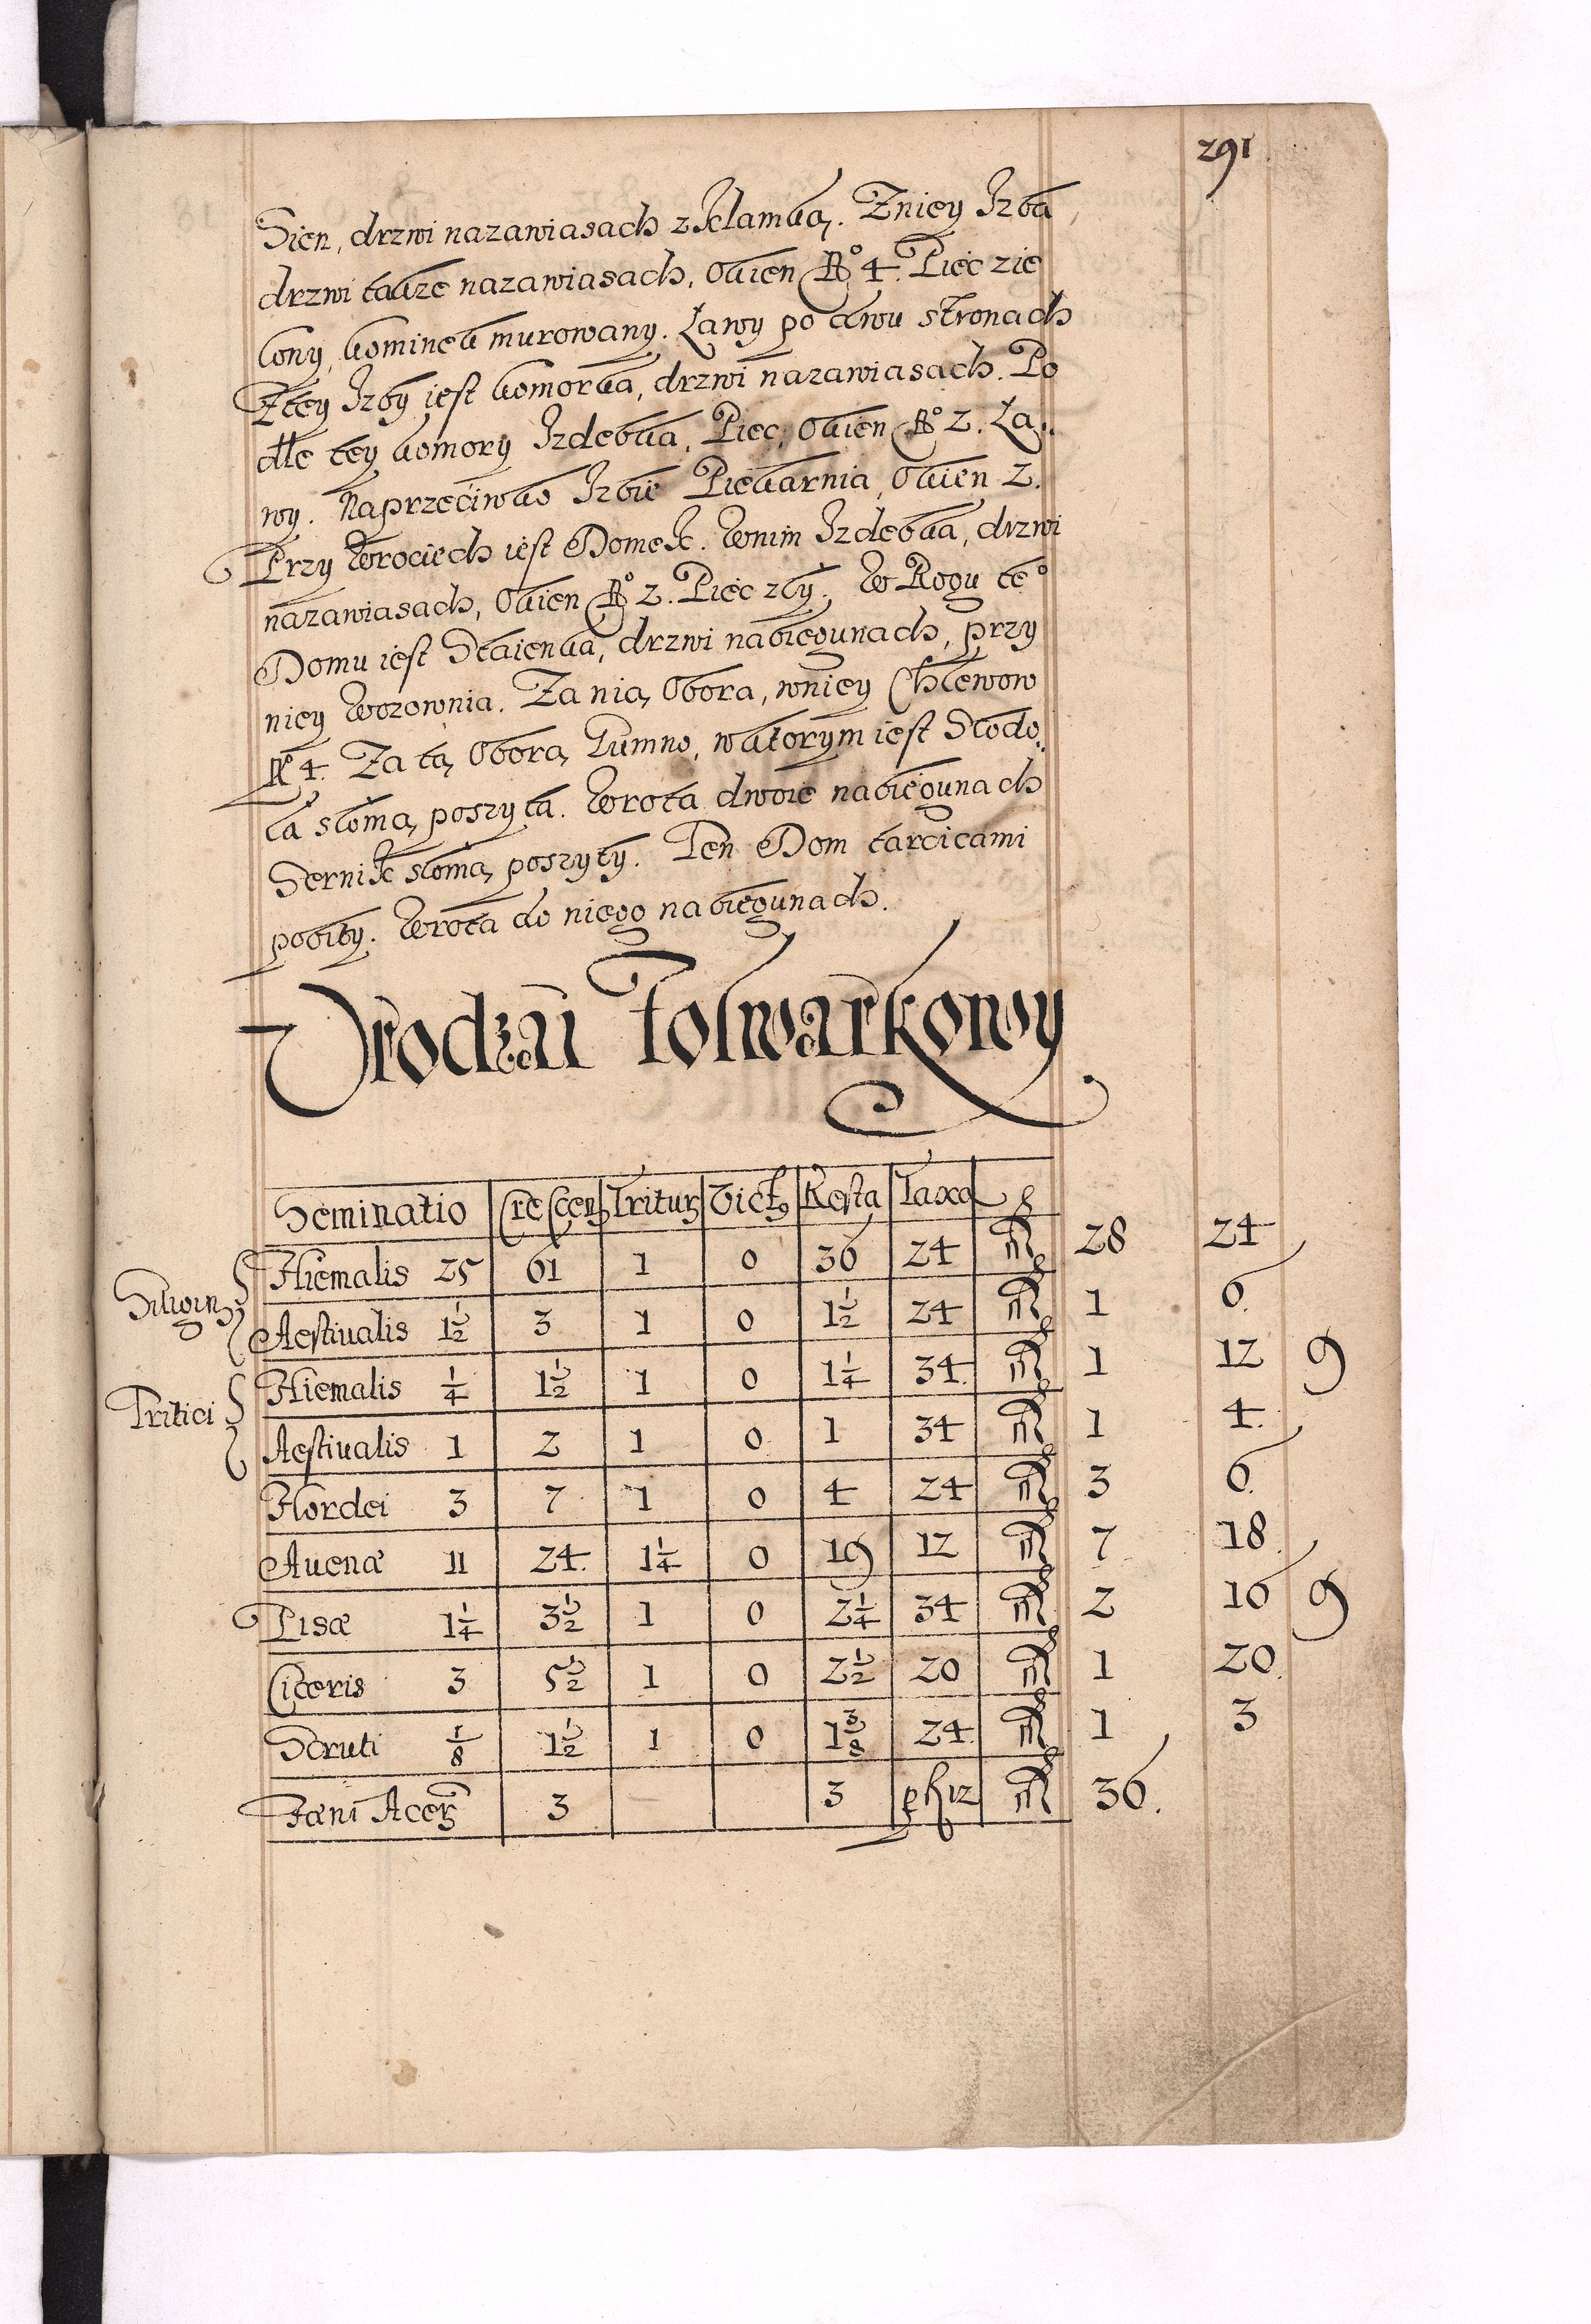 291
Sien, drzwi nazawiasach z Klamką. Zniey Jzba
drzwi także nazawiasach, Okien No 4. Piec zie
lony, kominek murowany. Ławy po dwu stronach
Ztey Jzby iest komorka, drzwi nazawiasach. Po
dle tey komory Jzdebka, Piec, Okien No 2. Ła:
wy. Naprzeciwko Jzbie Piekarnia, Okien 2.
Przy Wrociech iest Domek. Wnim Jzdebka, drzwi
nazawiasach, Okien No 2. Piec zły. W Rogu te°
Domu iest Staienka, drzwi nabiegunach, przy
niey Wozownia. Za nią Obora, wniey Chlewow
No 4. Za tą Oborą Gumno, wktorym iest Stodo:
ła słomą poszyta. Wrota dwoie nabiegunach
Sernik słomą poszyty. Ten Dom tarcicami
pobity. Wrota do niego nabiegunach.
Vrodzai Folwarkowy
Seminatio Crescen Tritur Vict Resta Taxa
Siligin Hiemalis 25 61 1 0 36 24 28 24
Aestiualis 1 1/2 3 1 0 1 1/2 24 1 6
Tritici Hiemalis 1/4 1 1/2 1 0 1 1/4 34 1 12 9
Aestiualis 1 2 1 0 1 34 1 4
Hordei 3 7 1 0 4 24 3 6
Auenæ 11 24 1 1/4 0 19 12 7 18
Pisæ 1 1/4 3 1/2 1 0 2 1/4 34 2 16 9
Ciceris 3 5 1/2 1 0 2 1/2 20 1 20
Scruti 1/8 1 1/2 1 0 1 3/8 24 1 3
Fæni Acer 3 3 12 36